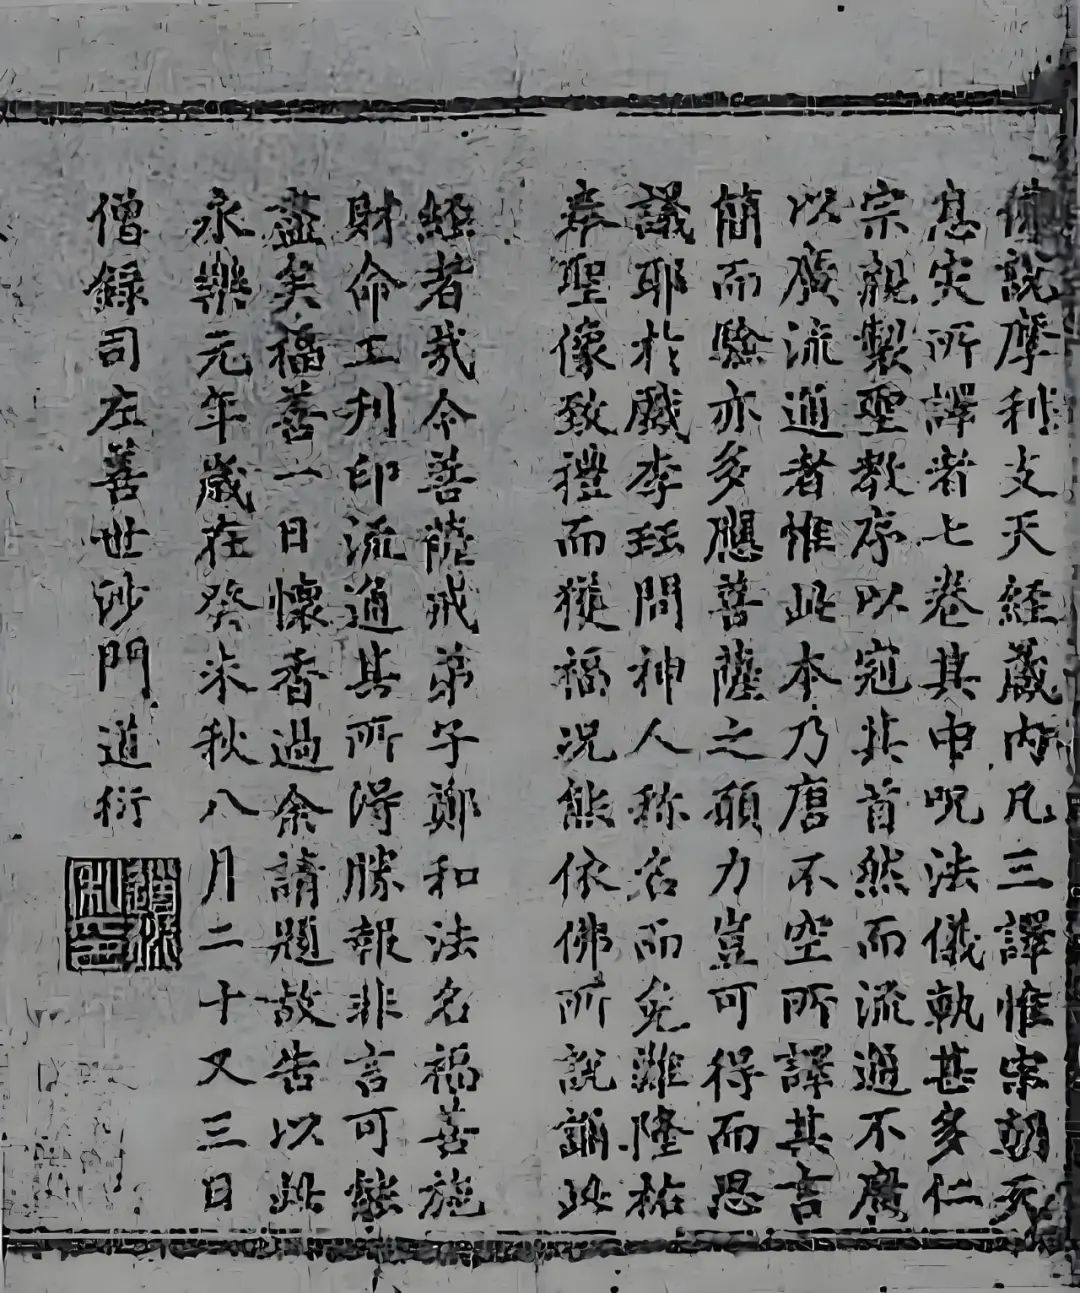 佛說摩利支天經藏內凡三譯惟宋朝天
息災所譯者七卷其中呪法儀軌甚多仁
宗親製聖教序以冠其首然而流通不廣
以廣流通者惟此本乃唐不空所譯其言
簡而驗亦多應菩薩之願力豈可得而思
議耶於戲李珏問神人称名而免難隆祐
奉聖像致禮而獲福況能依佛所說誦此
經者哉今菩薩戒弟子鄭和法名福善施
財命工刊印流通其所得勝報非言可能
盡矣福善一日懷香過余請題故告以此
永樂元年歲在癸未秋八月二十又三日
僧錄司左善世沙門道衍